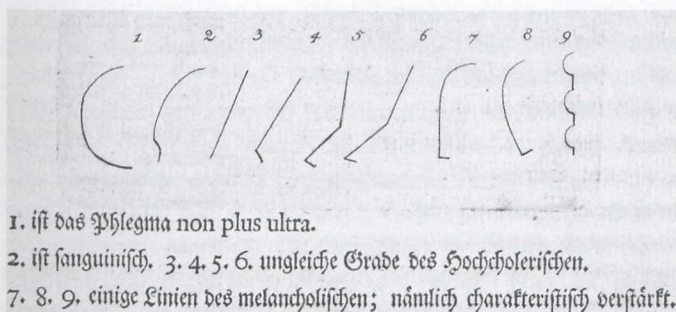 1 2 3 4 5 6 7 8 9
1. ist das Phlegma non plus ultra.
2. ist sanguinisch. 3. 4. 5. 6. ungleiche Grade des Hochcholerischen.
7. 8. 9. einige Linien des melancholischen; nämlich charakteristisch verstärkt.